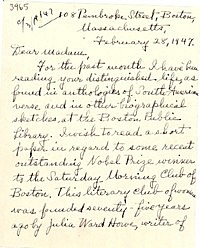 3965
108 Pembroke Street, Boston,
Massachusetts,
February 28, 1947.
Dear Madame,
For the past month I have been
reading your distinguished life, as
found in anthologies of South American
verse and in other biographical
sketches, at the Boston Public
Library. I wish to read a short
paper in regard to some recent
outstanding Nobel Prize winner
to the Saturday Morning Club of
Boston. This literary club of women
was founded seventy-five years
ago by Julia Ward Howe, writer of